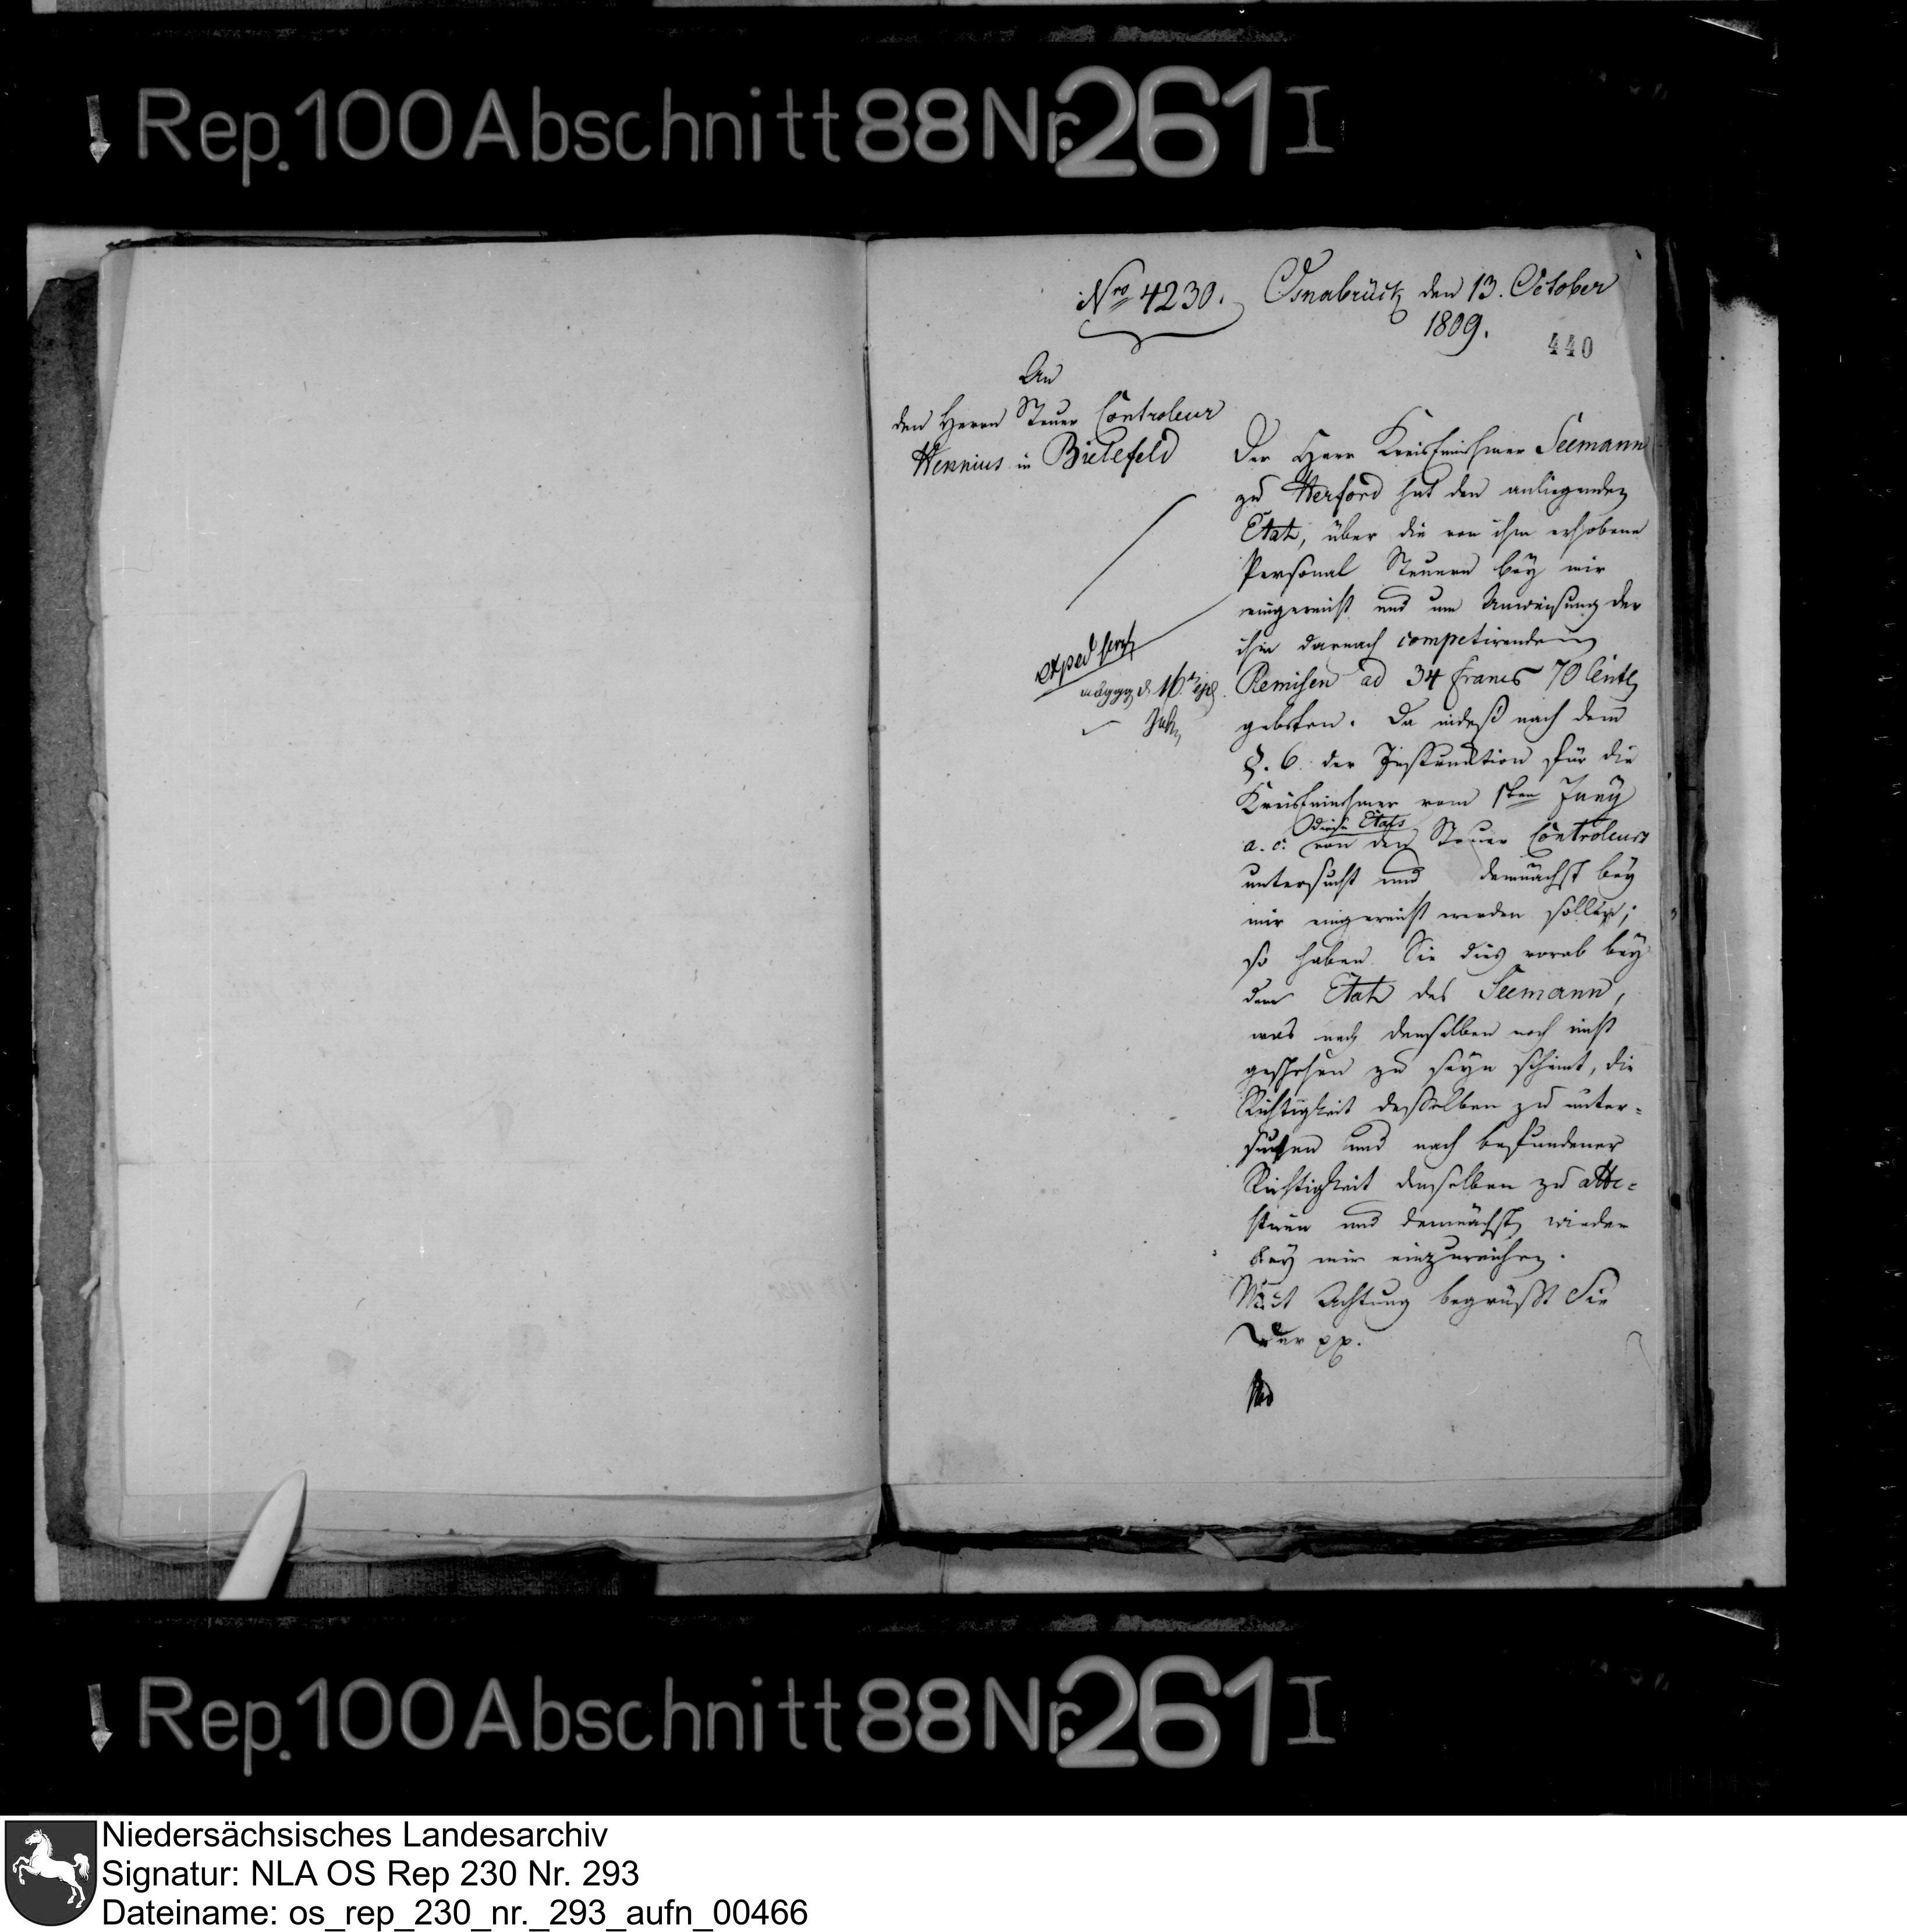 Rep. 100 Abschnitt 88 Nr. 261 I
Nro 4230. Osnabrück den 13. October
1809.
440
An
den Herrn Steuer Controleur
Hennius in Bielefeld
Der Herr Kreiseinnehmer Seemann
zu Herford hat den anliegenden
Etat, über die von ihm erhobene
Personal Steuern bey mir
eingereicht und um Anweisung der
ihm darnach competirenden
Remisen ad 34 Francs 70 Cents
gebeten. Da indeß nach dem
§. 6. der Instruction für die
Kreiseinnehmer vom 1ten Juny
diese Etats
a. c. von den Steuer Controleurs
untersucht und demnächst bey
mir eingereicht werden sollen;
so haben Sie dies vorab bey
dem Etat des Seemann,
was nach demselben noch nicht
geschehen zu seyn scheint, die
Richtigkeit desselben zu unter=
suchen und nach befundener
Richtigkeit denselben zu atte=
stiren und demnächst wieder
bey mir einzureichen.
Mit Achtung begrüßt Sie
Der pp.
exped
Rep. 100 Abschnitt 88 Nr. 261 I
Niedersächsisches Landesarchiv
Signatur: NLA OS Rep 230 Nr. 293
Dateiname: os_rep_230_nr._293_aufn_00466